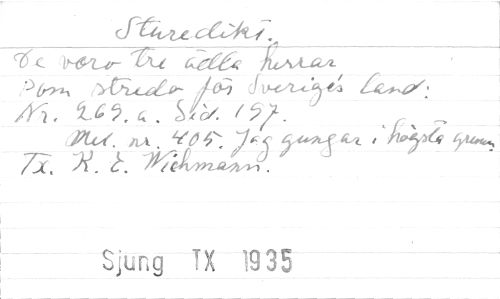 Sturedikt.
De voro tre ädla herrar
som streda för Sveriges land:
Nr. 269.a. Sid. 197.
Mel. nr. 405. Jag gungar i högsta grenen.
Tx. K. E. Wichmann.
Sjung TX 1935